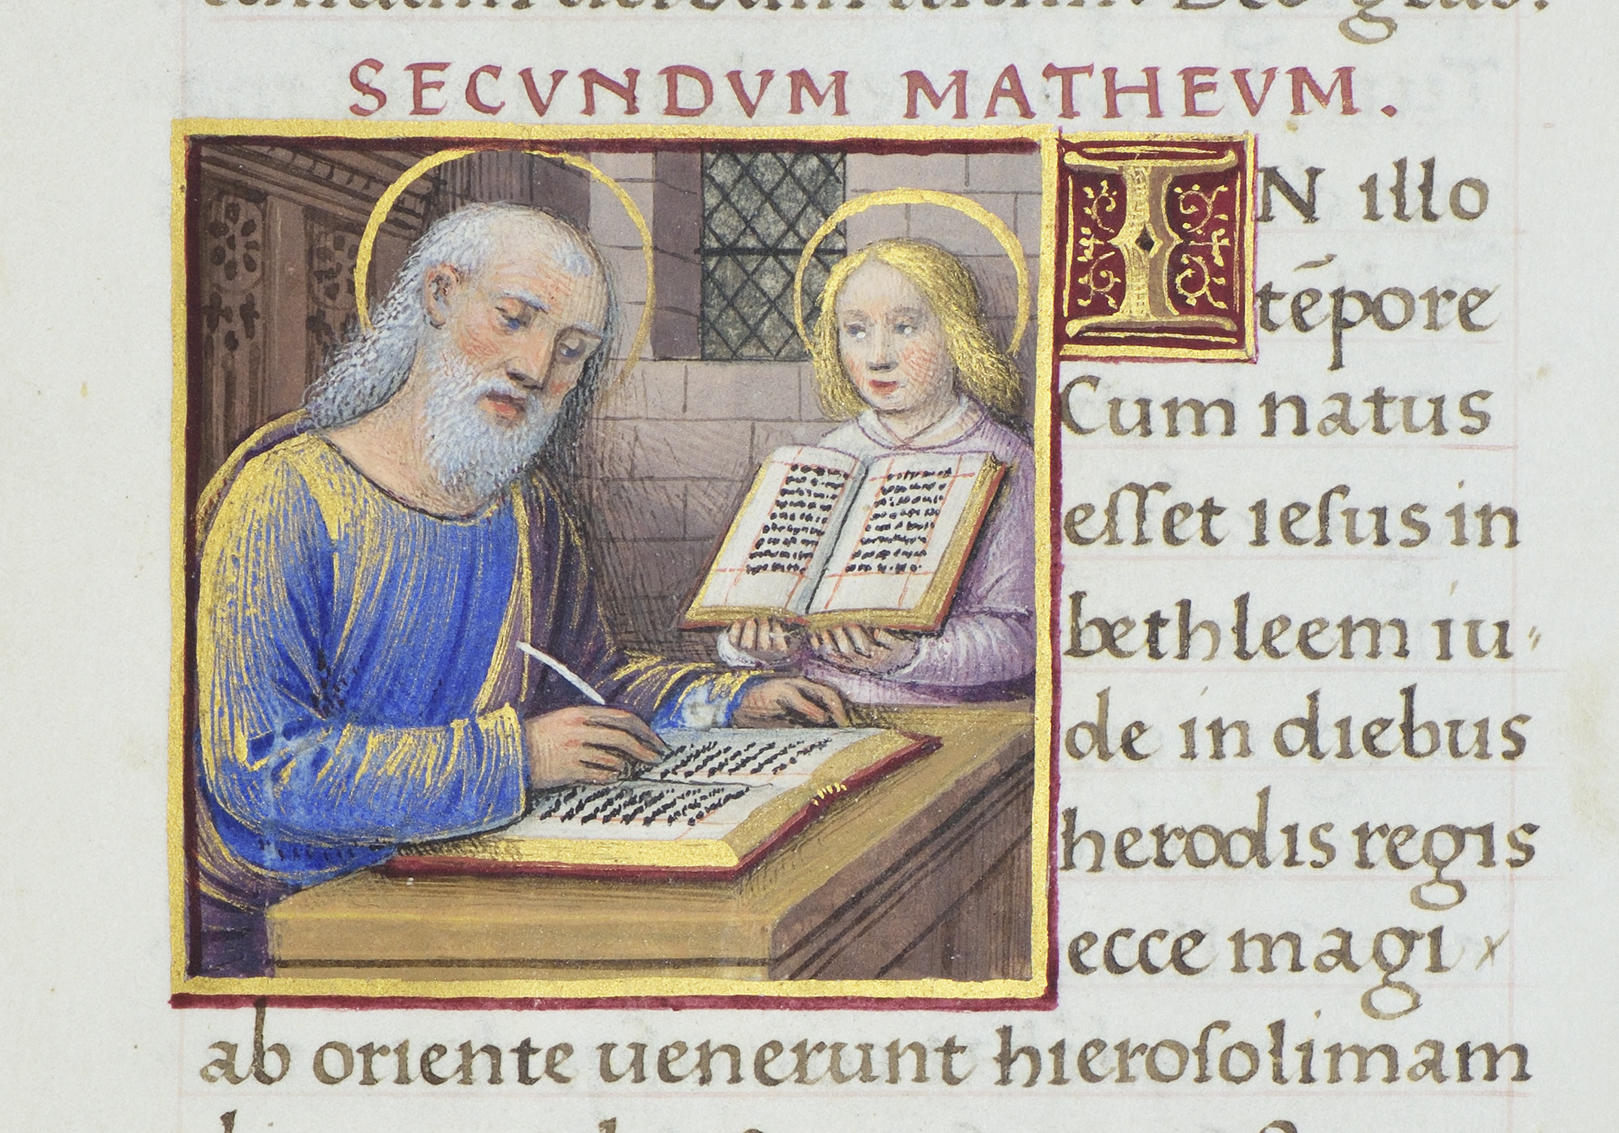 Deo gras.
SECVNDVM MATHEVM.
IN illo
tēpore
Cum natus
eſſet ieſus in
bethleem iu〃
de in diebus
herodis regis
ecce magi
ab oriente uenerunt hieroſolimam